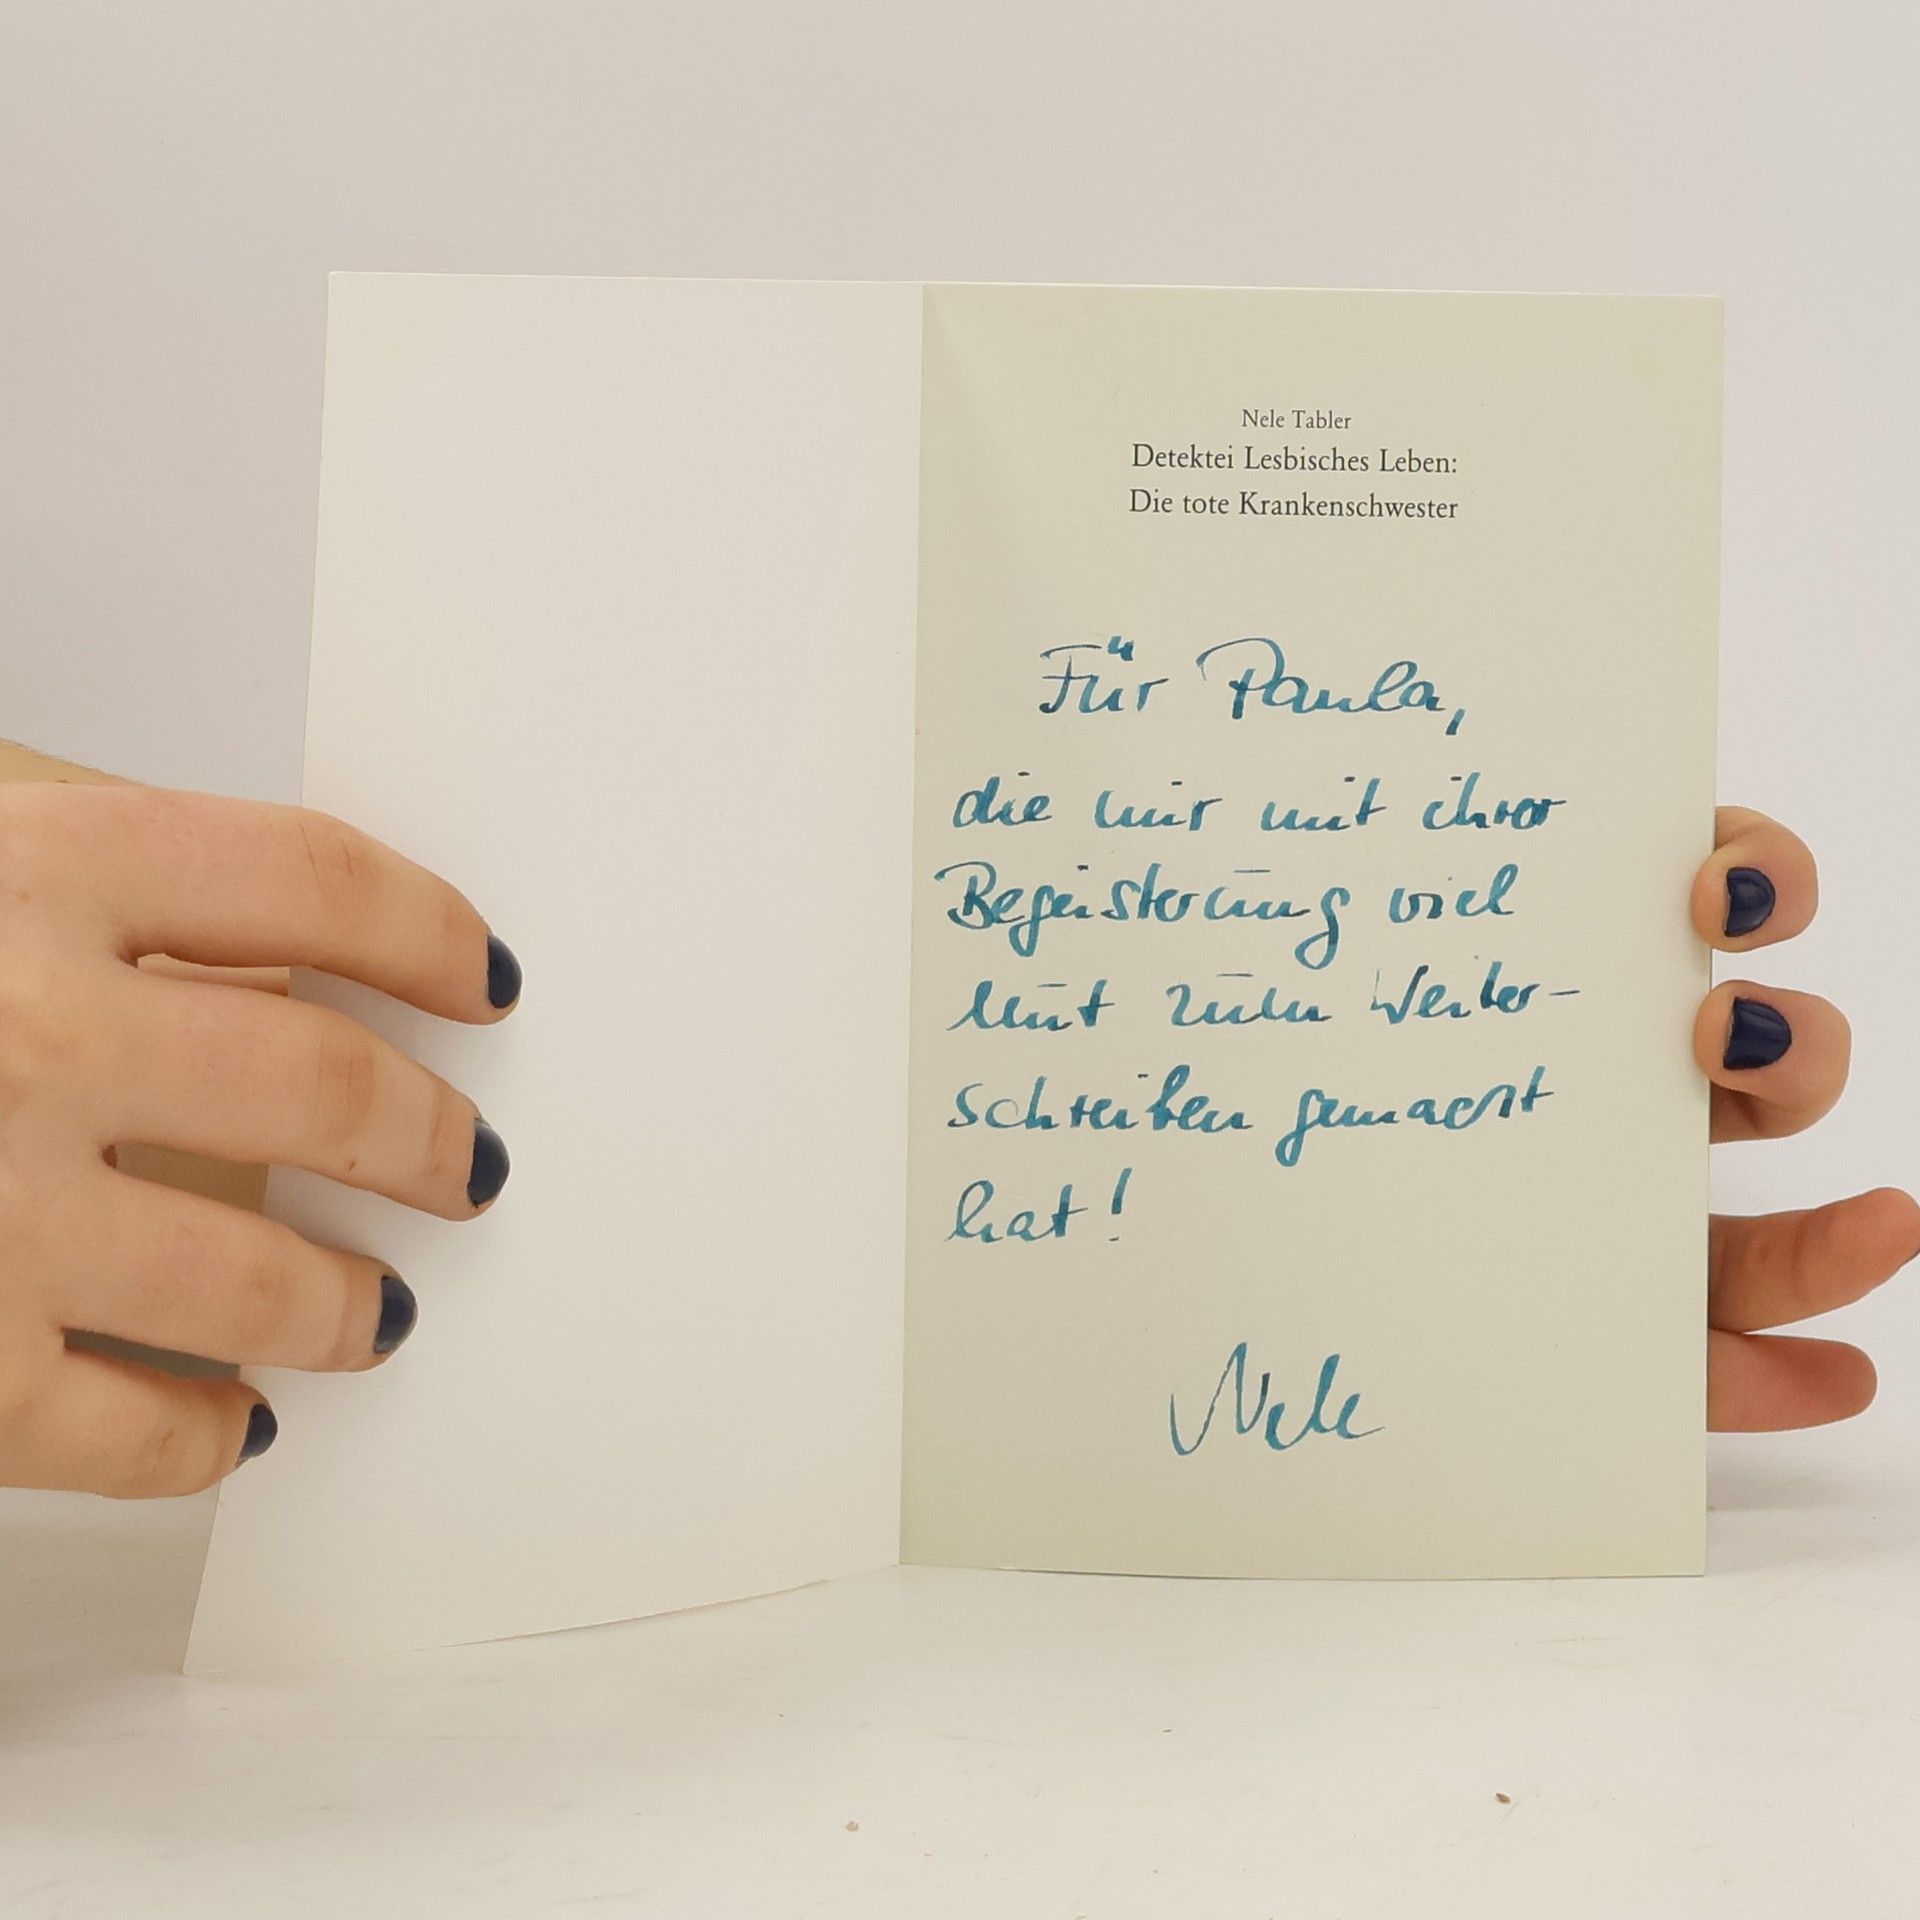 Nele Tabler
Detektei Lesbisches Leben:
Die tote Krankenschwester
Für Paula,
die mir mit ihrer
Begeisterung viel
Mut zum Weiter-
schreiben gemacht
hat!
Nele